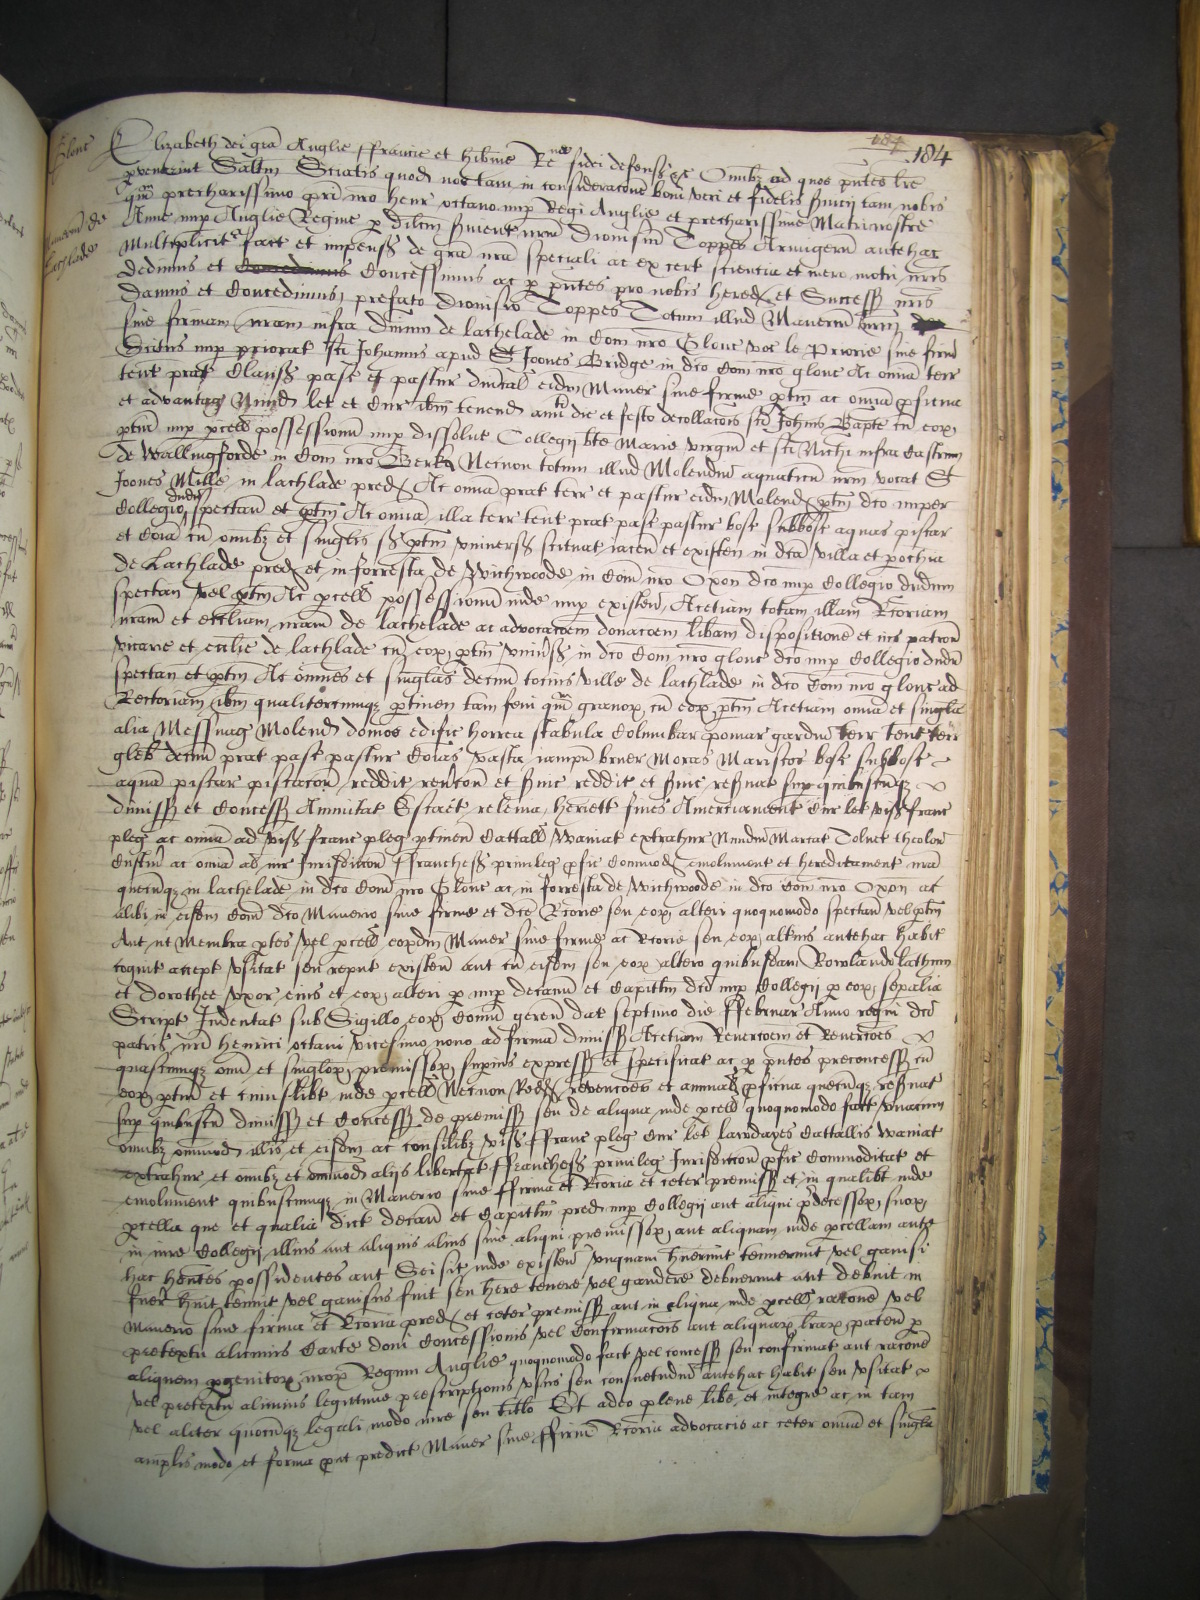 184
184
Glouc
Elizabeth dei gra Anglie ffrancie et hibnie Regina fidei defens &c Omibz ad quos pntes lre
pvenerint Saltm Sciatis quod nos tam in consideracone boni veri et fidelis svicij tam nobis
qm precharissimo pri nro Henr octavo nup Regi Anglie et precharissime Matri nostre
Manerm de
Lachlade
Anne nup Anglie Regine p dilcm svient nrm Dionisiu Toppes Armigerm antehac
multiplicit fact et impens de gra nra speciali ac ex cert sciencia et mero motu nris
Dedimus et Concessimus ac p pntes pro nobis hered et Success nris
Damus et Concedimus prefato Dionisio Toppes Totum illud Manerm nrm
sive firmam nram infra dnium de lachelade in Com nro Glouc voc le Priorie sive firm
Scitus nup priorat sci Johannis apud St Joones Bridge in dco Com nro glouc Ac omia terr
tent prat Claus pasc et pastur dnical eidm Maner sive firme ptin ac omia pficua
et advantag Nundi let et Cur ibm tenend die et festo decollacois sci Johnis Bapte cu eox
ptin nup pcell possessionu nup dissolut Collegij bte Marie virginis et sci Nichi infra Castrum
de Wallingforde in Com nro Berk Necnon totum illud Molendm aquaticu nrm vocat St
Joones Mille in lachlade pred Ac omia prat terr et pastur eidm Molend ptin dco nuper
Collegio dudm spectan et ptin Ac omia illa terr tent prat pasc pastur bosc subbosc aquas piscar
et coia cu omibz et singlis s ptin univers scituat iacen et existen in dca villa et pochia
de Lachlade pred et in forresta de Wichwoode in Com nro Oxon dco nup Collegio dudum
spectan vel ptin Ac pcell possessionu inde nup existen Acetiam totam illam Rcoriam
nram et eccliam nram de lachelade ac advocacoem donacoem libam disposicione et ius patron
vicarie et ecclie de lachlade cu eox ptin univs in dco Com nro glouc dco nup Collegio dudu
spectan et ptin Ac omnes et singlas decim tocius ville de lachlade in dco Com nro glouc ad
Rectoriam ibm qualitercumqz ptinen tam feni qm granox cu eox ptin Acetiam omia et singla
alia Messuag Molend domos edific horrea stabula Columbar pomar gardin terr tent
gleb decim prat pasc pastur coias vasta iampn bruer Moras Mariscos bosc subbosc
aquas piscar piscacon reddit revcion et svic reddit et svic resvat sup quibuscuqz
dimiss et Concess Annuitat Escaet releuia heriett fines Amerciament Cur let vis franc
pleg ac omia ad vis franc pleg ptinen Cattall Waviat extrahur Nundin Marcat Tolnet theolon
Custum ac omia al iur Iurisdiccon ffranches privileg pfic Commod emolument et hereditament nra
quecuqz in lachelade in dco Com nro Glouc ac in forresta de Wichwoode in dco Com nro Oxon ac
alibi in eisdm Com dco Manerio sive firme et dce Rcorie seu eox alteri quoquomodo spectan vel ptin
Aut ut Membra ptes vel pcell eoxdm Maner sive firme ac Rcorie seu eox altius antehac habit
cognit accept usitat seu reput existen aut cu eisdm seu eox altero quibusdam Rowlando lathum
et Dorothee uxor eius et eox alteri p nup decanu et Capittm dci nup Collegij p eox sepalia
Script Indentat sub Sigillo eox comuni geren dat septimo die ffebruar Anno regni dci
patris nri Henrici octavi vicesimo nono ad firma dimiss Acetiam Revercoem et Revercoes
quascumqz omi et singlox premissox superius express et specificat ac p pntes preconcess cu
eox ptin et cuiuslibt inde pcell Necnon Red revencoes et annual pficua quecuqz resvat
sup quibuscu dimiss et Concess de premiss seu de aliqua inde pcell quoquomodo fact unacum
omibz omimod illis et eisdm ac consilibz vis ffranc pleg Cur let lawdayes Cattallis Waviat
extrahur et omibz et omimod alijs libertat ffranches privileg Iurisdiccon pfic Commoditat et
emolument quibuscumqz in Manerio sive ffirma et Rcoria et ceter premiss et in qualibt inde
pcella que et qualia dict decan et Capittm pred nup Collegij aut aliqui pdecessox suox
in iure Collegij illius aut aliquis alius sive aliqui premissox aut aliquam inde pcellam ante
hac hentes possidentes aut Seisit inde existen unquam huerunt tenuerunt vel gavisi
fuer huit tenuit vel gavisus fuit seu here tenere vel gaudere debuerunt aut debuit in
Manerio sive firma et Rcoria pred et ceter premiss aut in aliqua inde pcell racone vel
pretextu alicuius Carte doni Concessionis vel Confirmacois aut aliquarx lrarx paten p
aliquem pgenitox nrox Regum Anglie quoquomodo fact vel concess seu confirmat aut racone
vel pretextu alicuius legittime prescripcionis usus seu consuetudin antehac habit seu usitat
vel aliter quocuqz legali modo iure seu titlo Et adeo plene libe et integre ac in tam
amplis modo et forma put predict Maner sive ffirm Rcoria advocacio ac ceter omia et singla